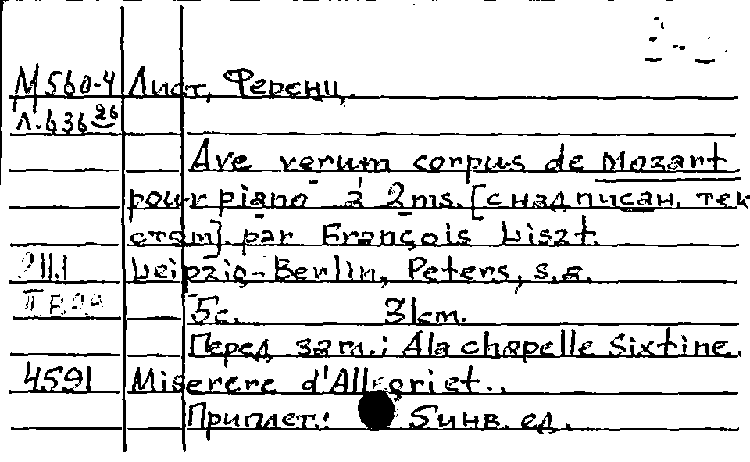 М 560-4 Лист, Ференц.
Л.636 26
Ave verum corpus de Mozart
pour piano à 2ms. [с надписан. тек
стом]. par François Liszt.
Leipzig-Berlin, Peters, s.a.
5с. 31cm.
Перед загл.: A la chapelle Sixtine.
4591 Miserere d'Allegri et..
Приплет.: 5 инв. ед.